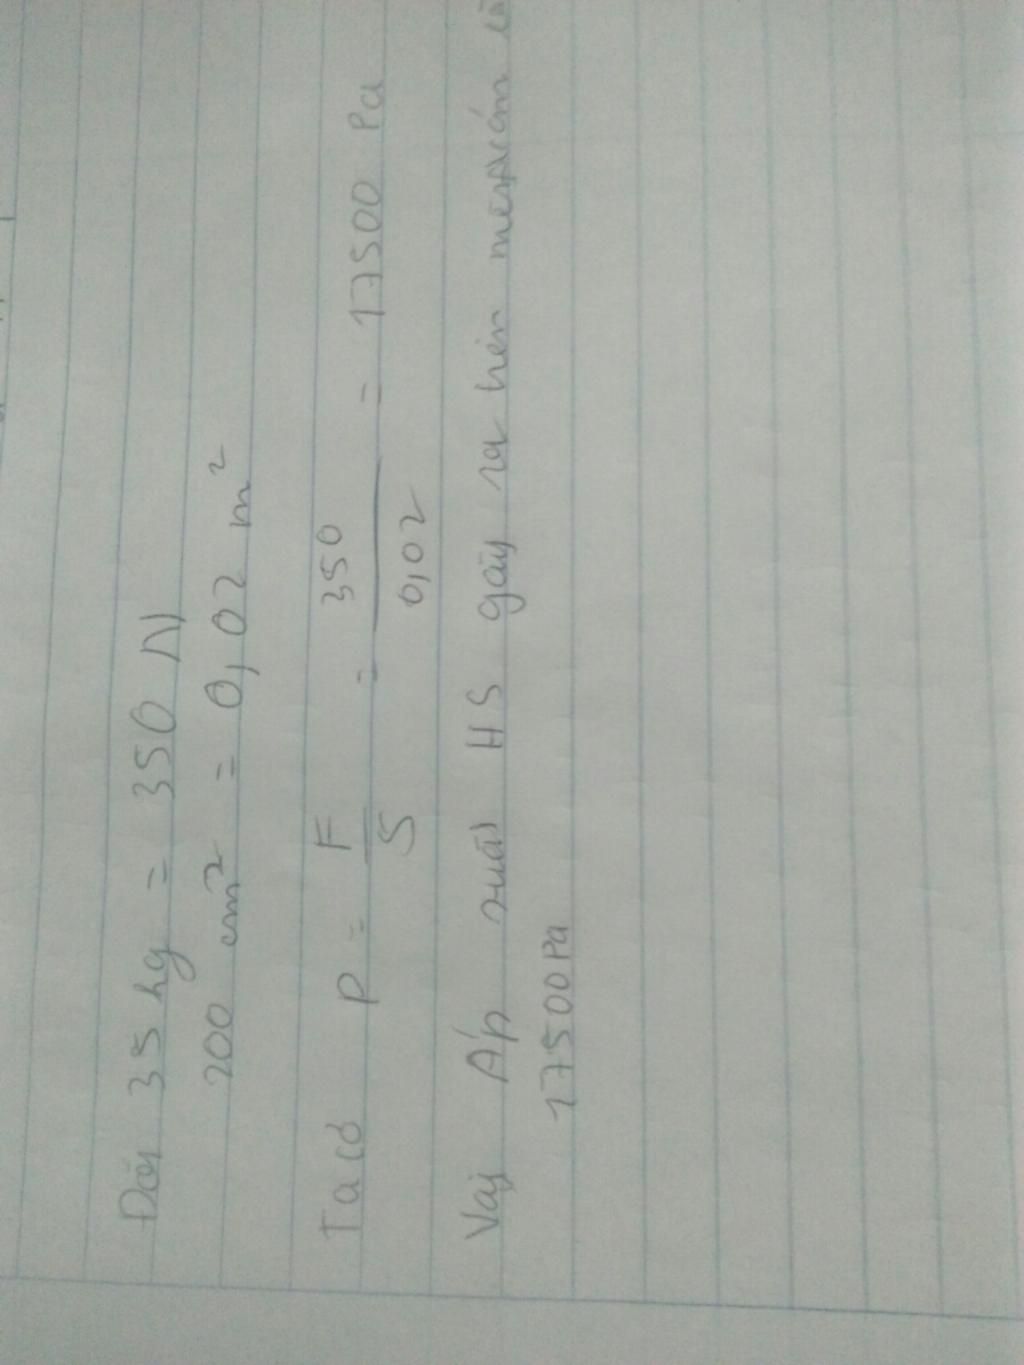 Đổi 35 kg = 350 N
200 cm² = 0,02 m²
Ta có P = F/S = 350/0,02 = 17500 Pa
Vậy Áp suất HS gây ra trên mặt sàn là
17500 Pa